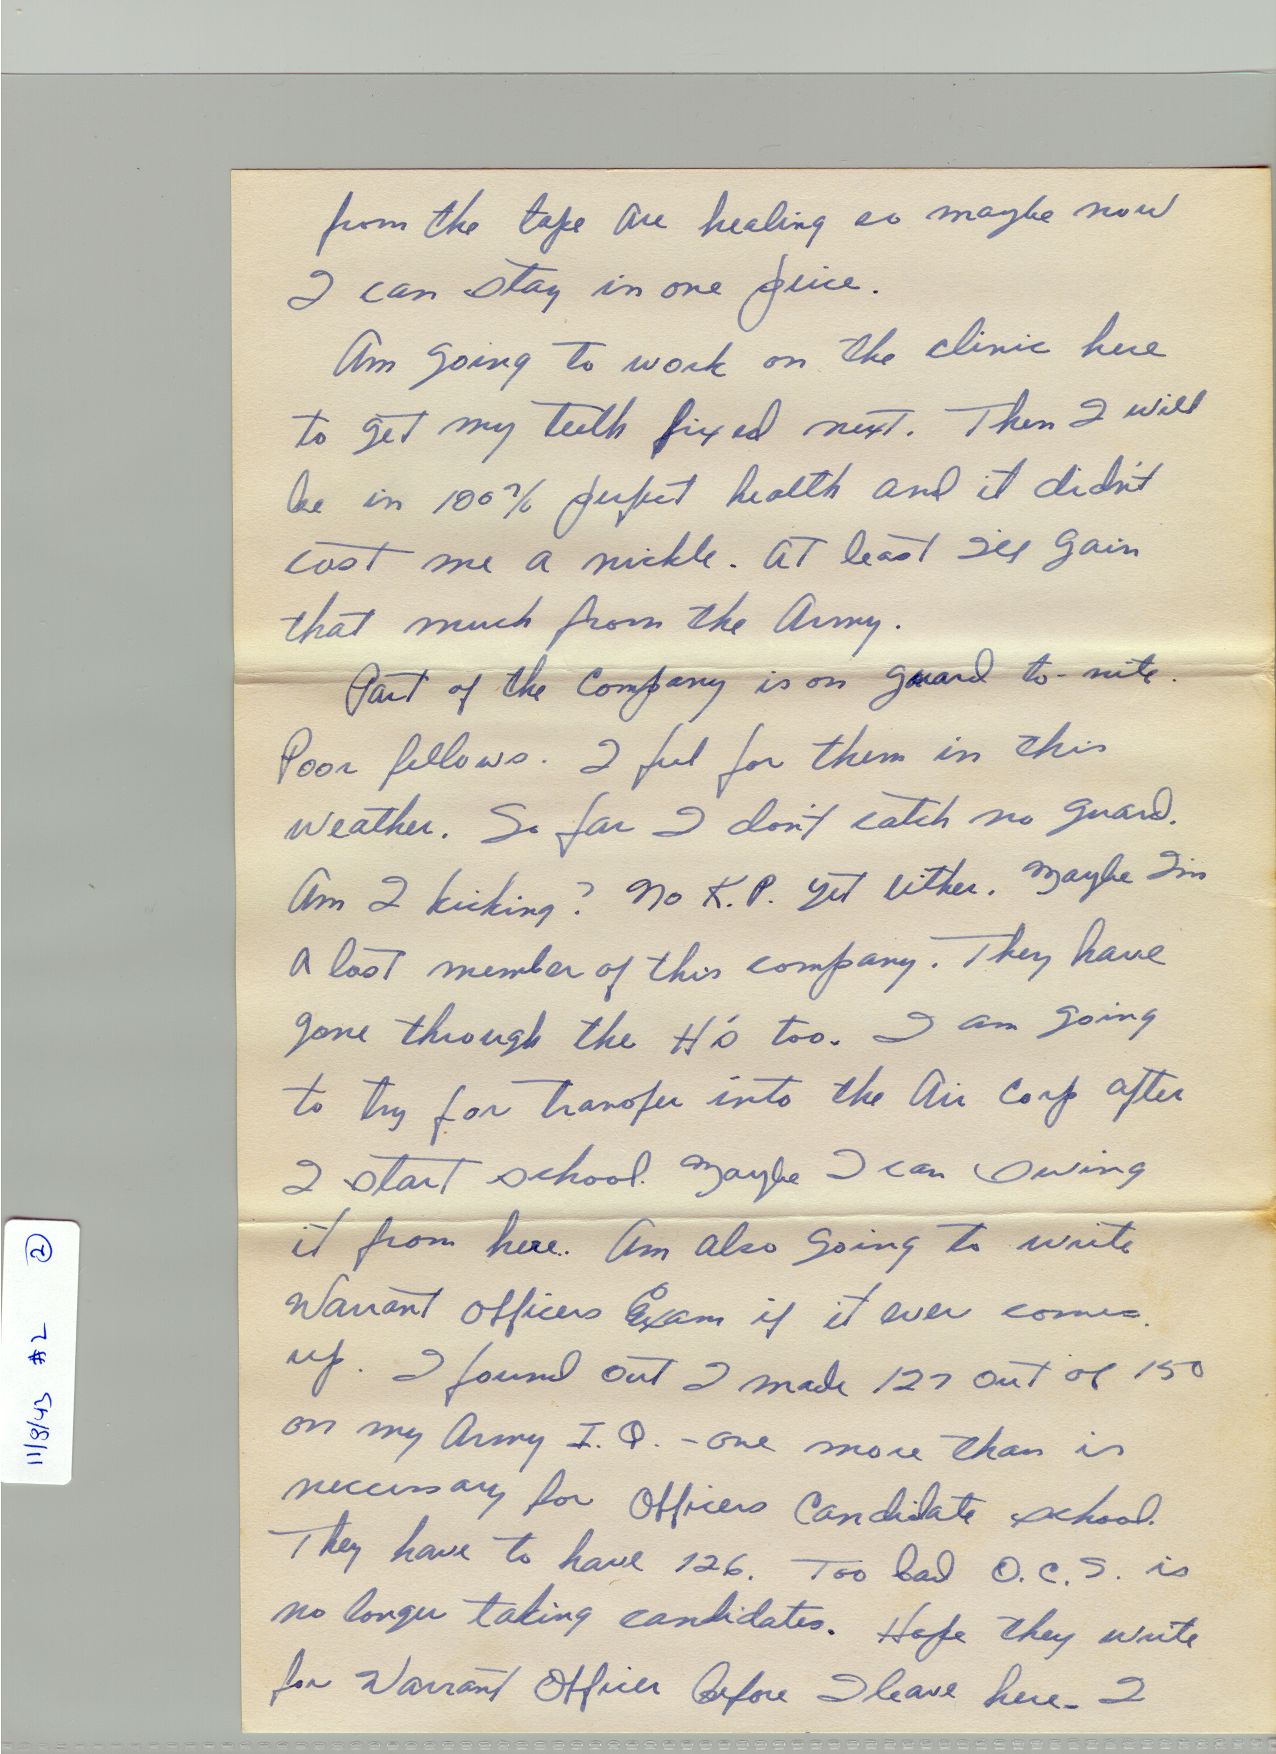 from the tape are healing so maybe now
I can stay in one peice.
Am going to work on the clinic here
to get my teeth fixed next. Then I will
be in 100% perfect health and it didn't
cost me a nickle. At least I'll gain
that much from the Army.
Part of the Company is on guard to-nite.
Poor fellows. I feel for them in this
weather. So far I don't catch no guard.
Am I kicking? No K.P. yet either. Maybe I'm
a lost member of this company. They have
gone through the H's too. I am going
to try for transfer into the Air Corp after
I start school. Maybe I can swing
it from here. Am also going to write
Warrant Officers Exam if it ever comes
up. I found out I made 127 out of 150
on my Army I.Q. - one more than is
necessary for Officers Candidate school.
They have to have 126. Too bad O.C.S. is
no longer taking candidates. Hope they write
for Warrant Officer before I leave here - I
11/8/43 #2 2